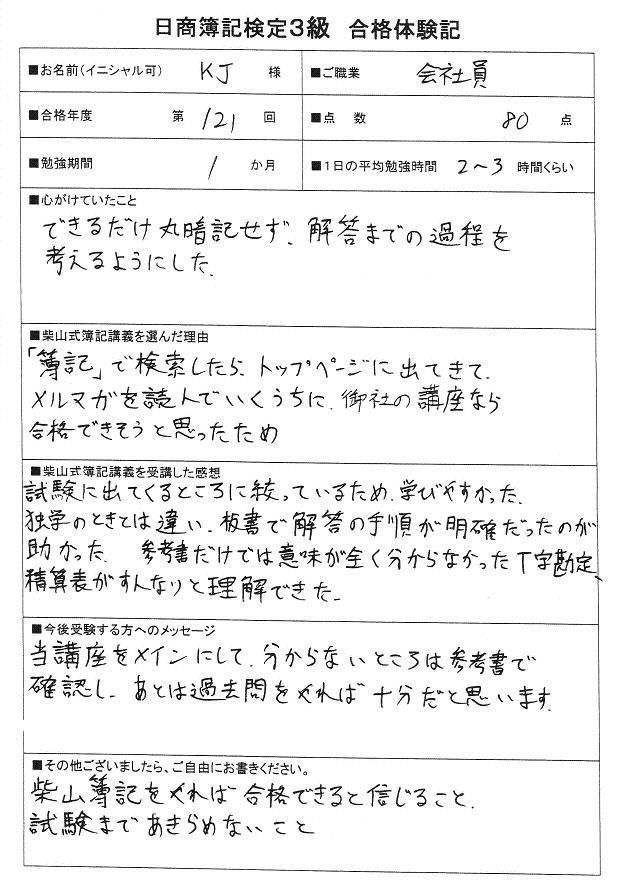 日商簿記検定3級 合格体験記
■お名前(イニシャル可) KJ 様 ■ご職業 会社員
■合格年度 第 121 回 ■点 数 80 点
■勉強期間 1 か月 ■1日の平均勉強時間 2～3 時間くらい
■心がけていたこと
できるだけ丸暗記せず、解答までの過程を
考えるようにした.
■柴山式簿記講義を選んだ理由
「簿記」で検索したら、トップページに出てきて.
メルマガを読んでいくうちに、御社の講座なら
合格できそうと思ったため
■柴山式簿記講義を受講した感想
試験に出てくるところに絞っているため、学びやすかった.
独学のときとは違い、板書で解答の手順が明確だったのが
助かった. 参考書だけでは意味が全く分からなかったT字勘定、
精算表がすんなりと理解できた.
■今後受験する方へのメッセージ
当講座をメインにして、分からないところは参考書で
確認し、あとは過去問をやれば十分だと思います.
■その他ございましたら、ご自由にお書きください。
柴山簿記をやれば合格できると信じること.
試験まであきらめないこと